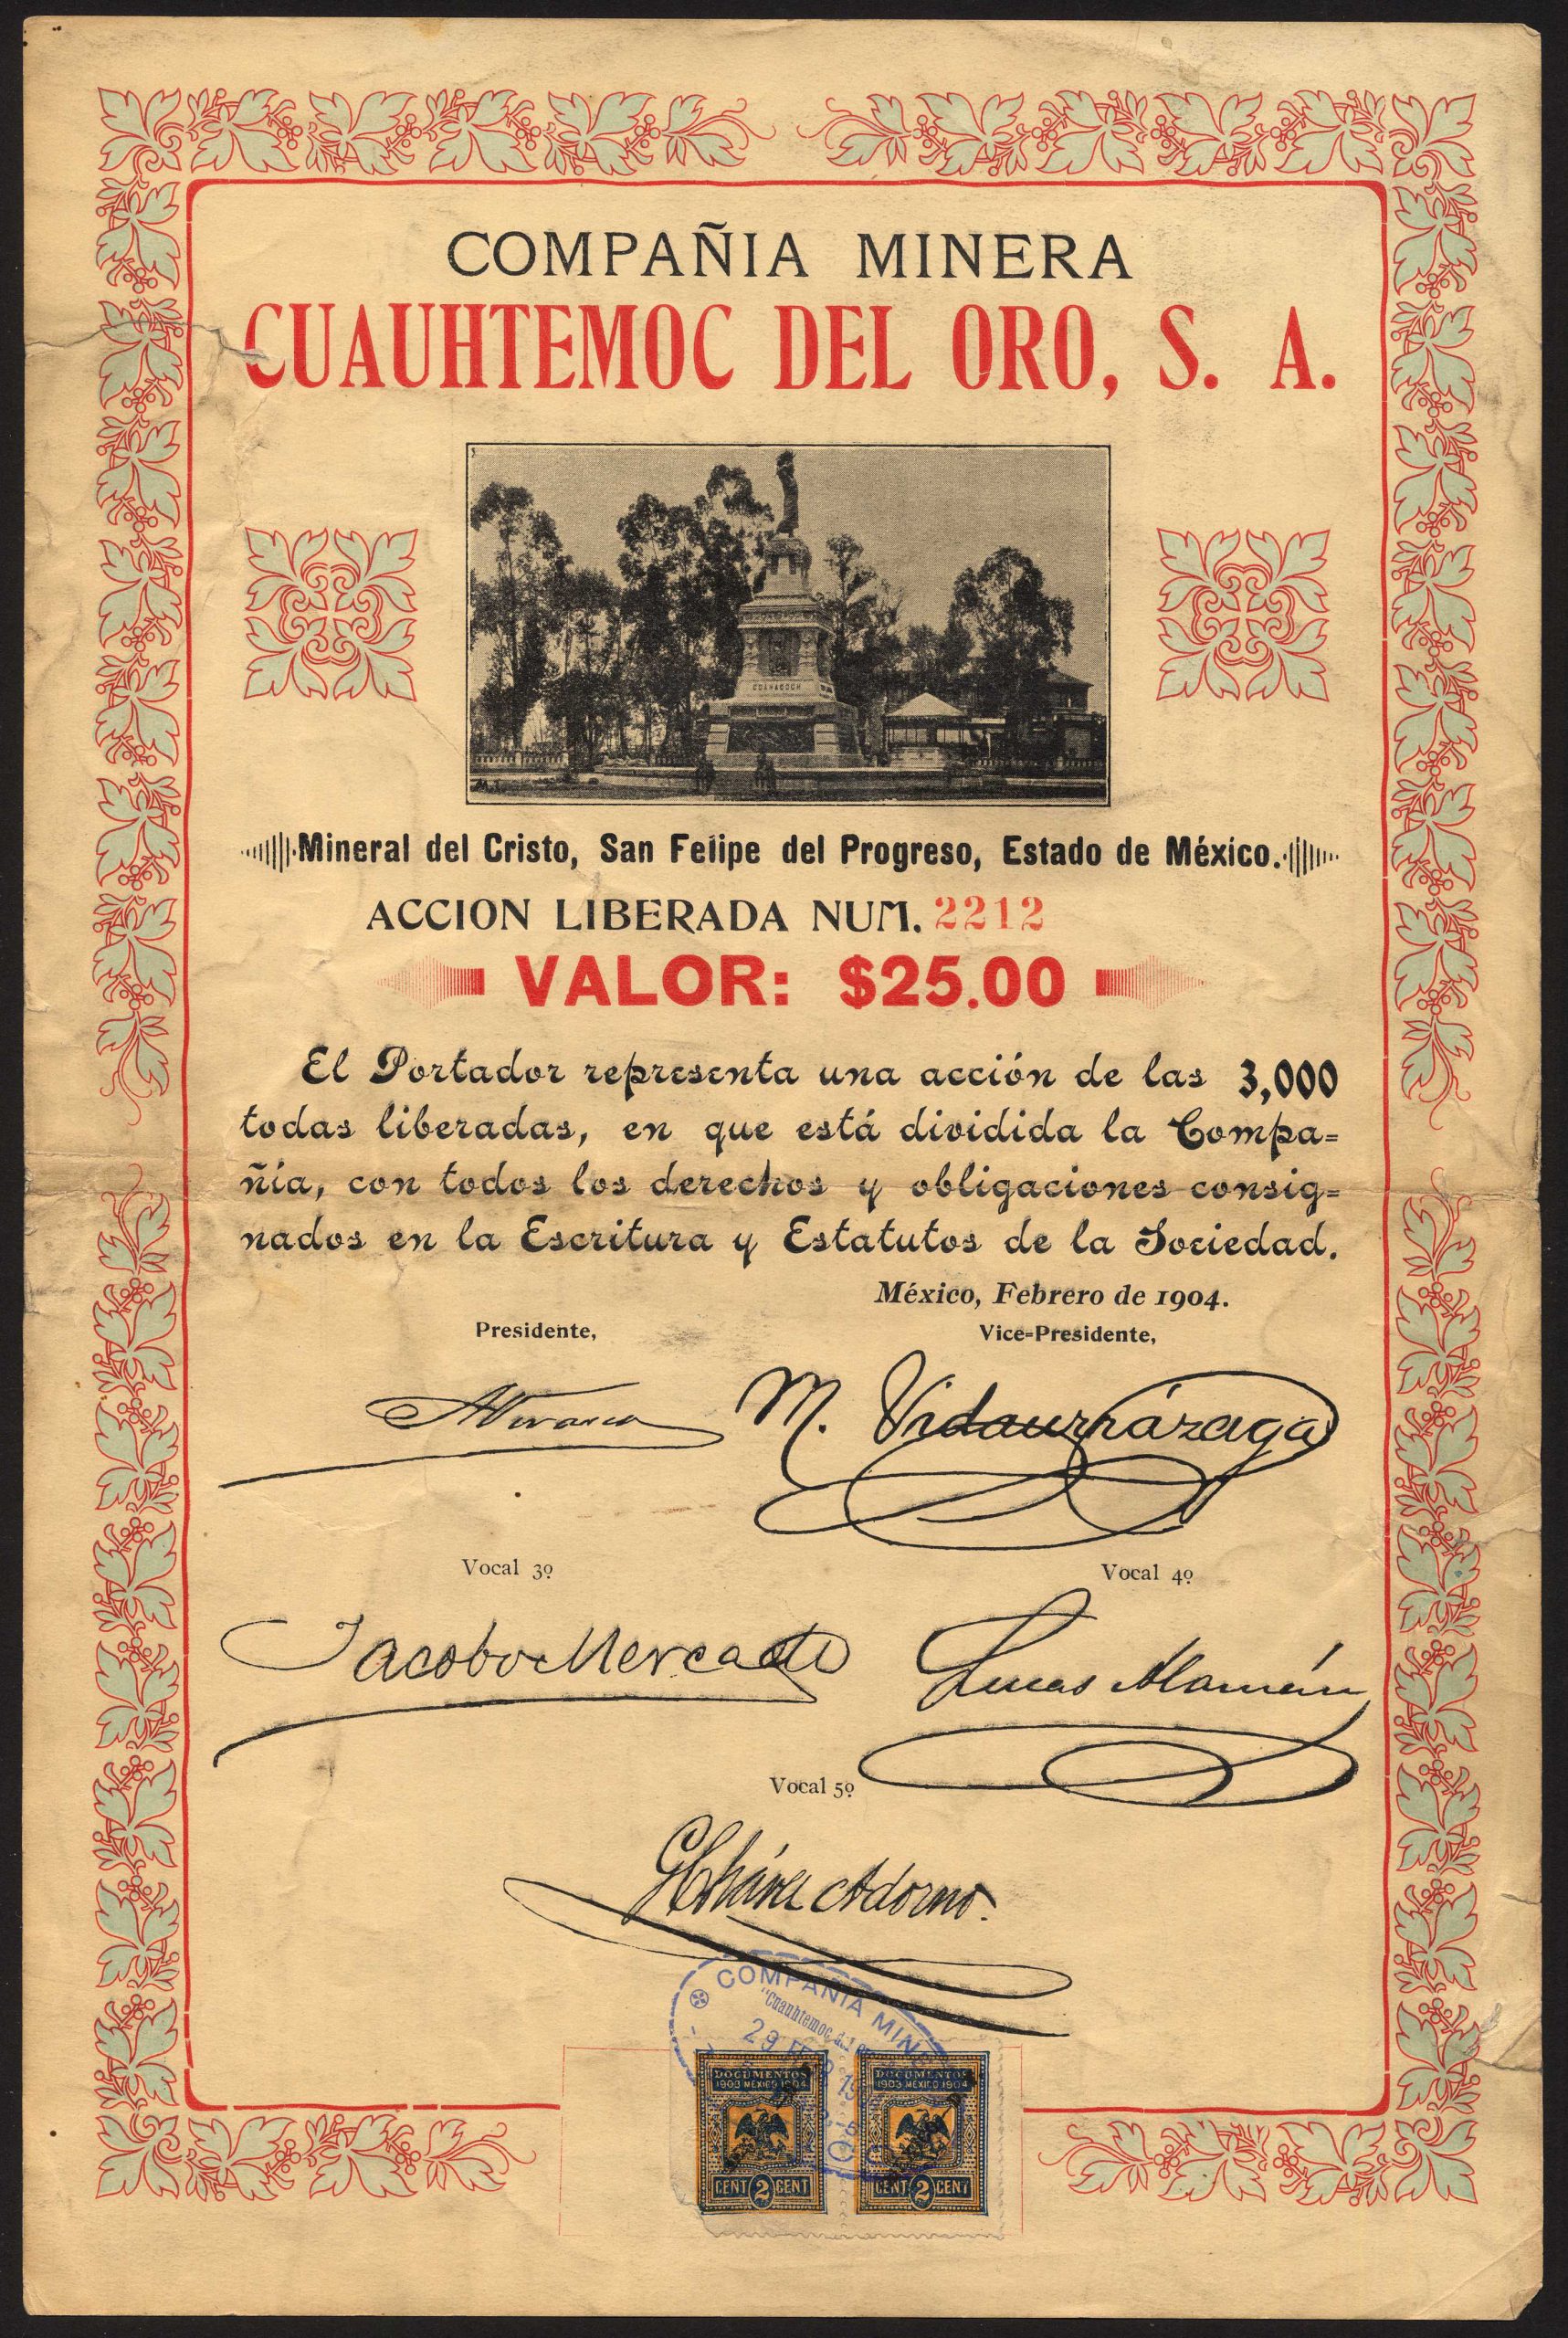 COMPAÑIA MINERA
CUAUHTEMOC DEL ORO, S. A.
Mineral del Cristo, San Felipe del Progreso, Estado de México.
ACCION LIBERADA NUM. 2212
VALOR: $25.00
El Portador representa una acción de las 3,000
todas liberadas, en que está dividida la Compa=
ñia, con todos los derechos y obligaciones consig=
nados en la Escritura y Estatutos de la Sociedad.
México, Febrero de 1904.
Presidente,
Vice=Presidente,
M. Vidaurrázaga
Vocal 3º
Vocal 4º
Jacobo Mercado
Lucas Alamán
Vocal 5º
G Chávez Adorno.
COMPAÑIA MIN
"Cuauhtemoc del
29
DOCUMENTOS
1903 MEXICO 1904
CENT 2 CENT
DOCUMENTOS
1903 MEXICO 1904
CENT 2 CENT